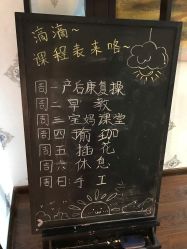 滴滴~
课程表来咯~
周一产后康复操
周二早教
周三宝妈课堂
周四瑜珈
周五插花
周六休息
周日手工